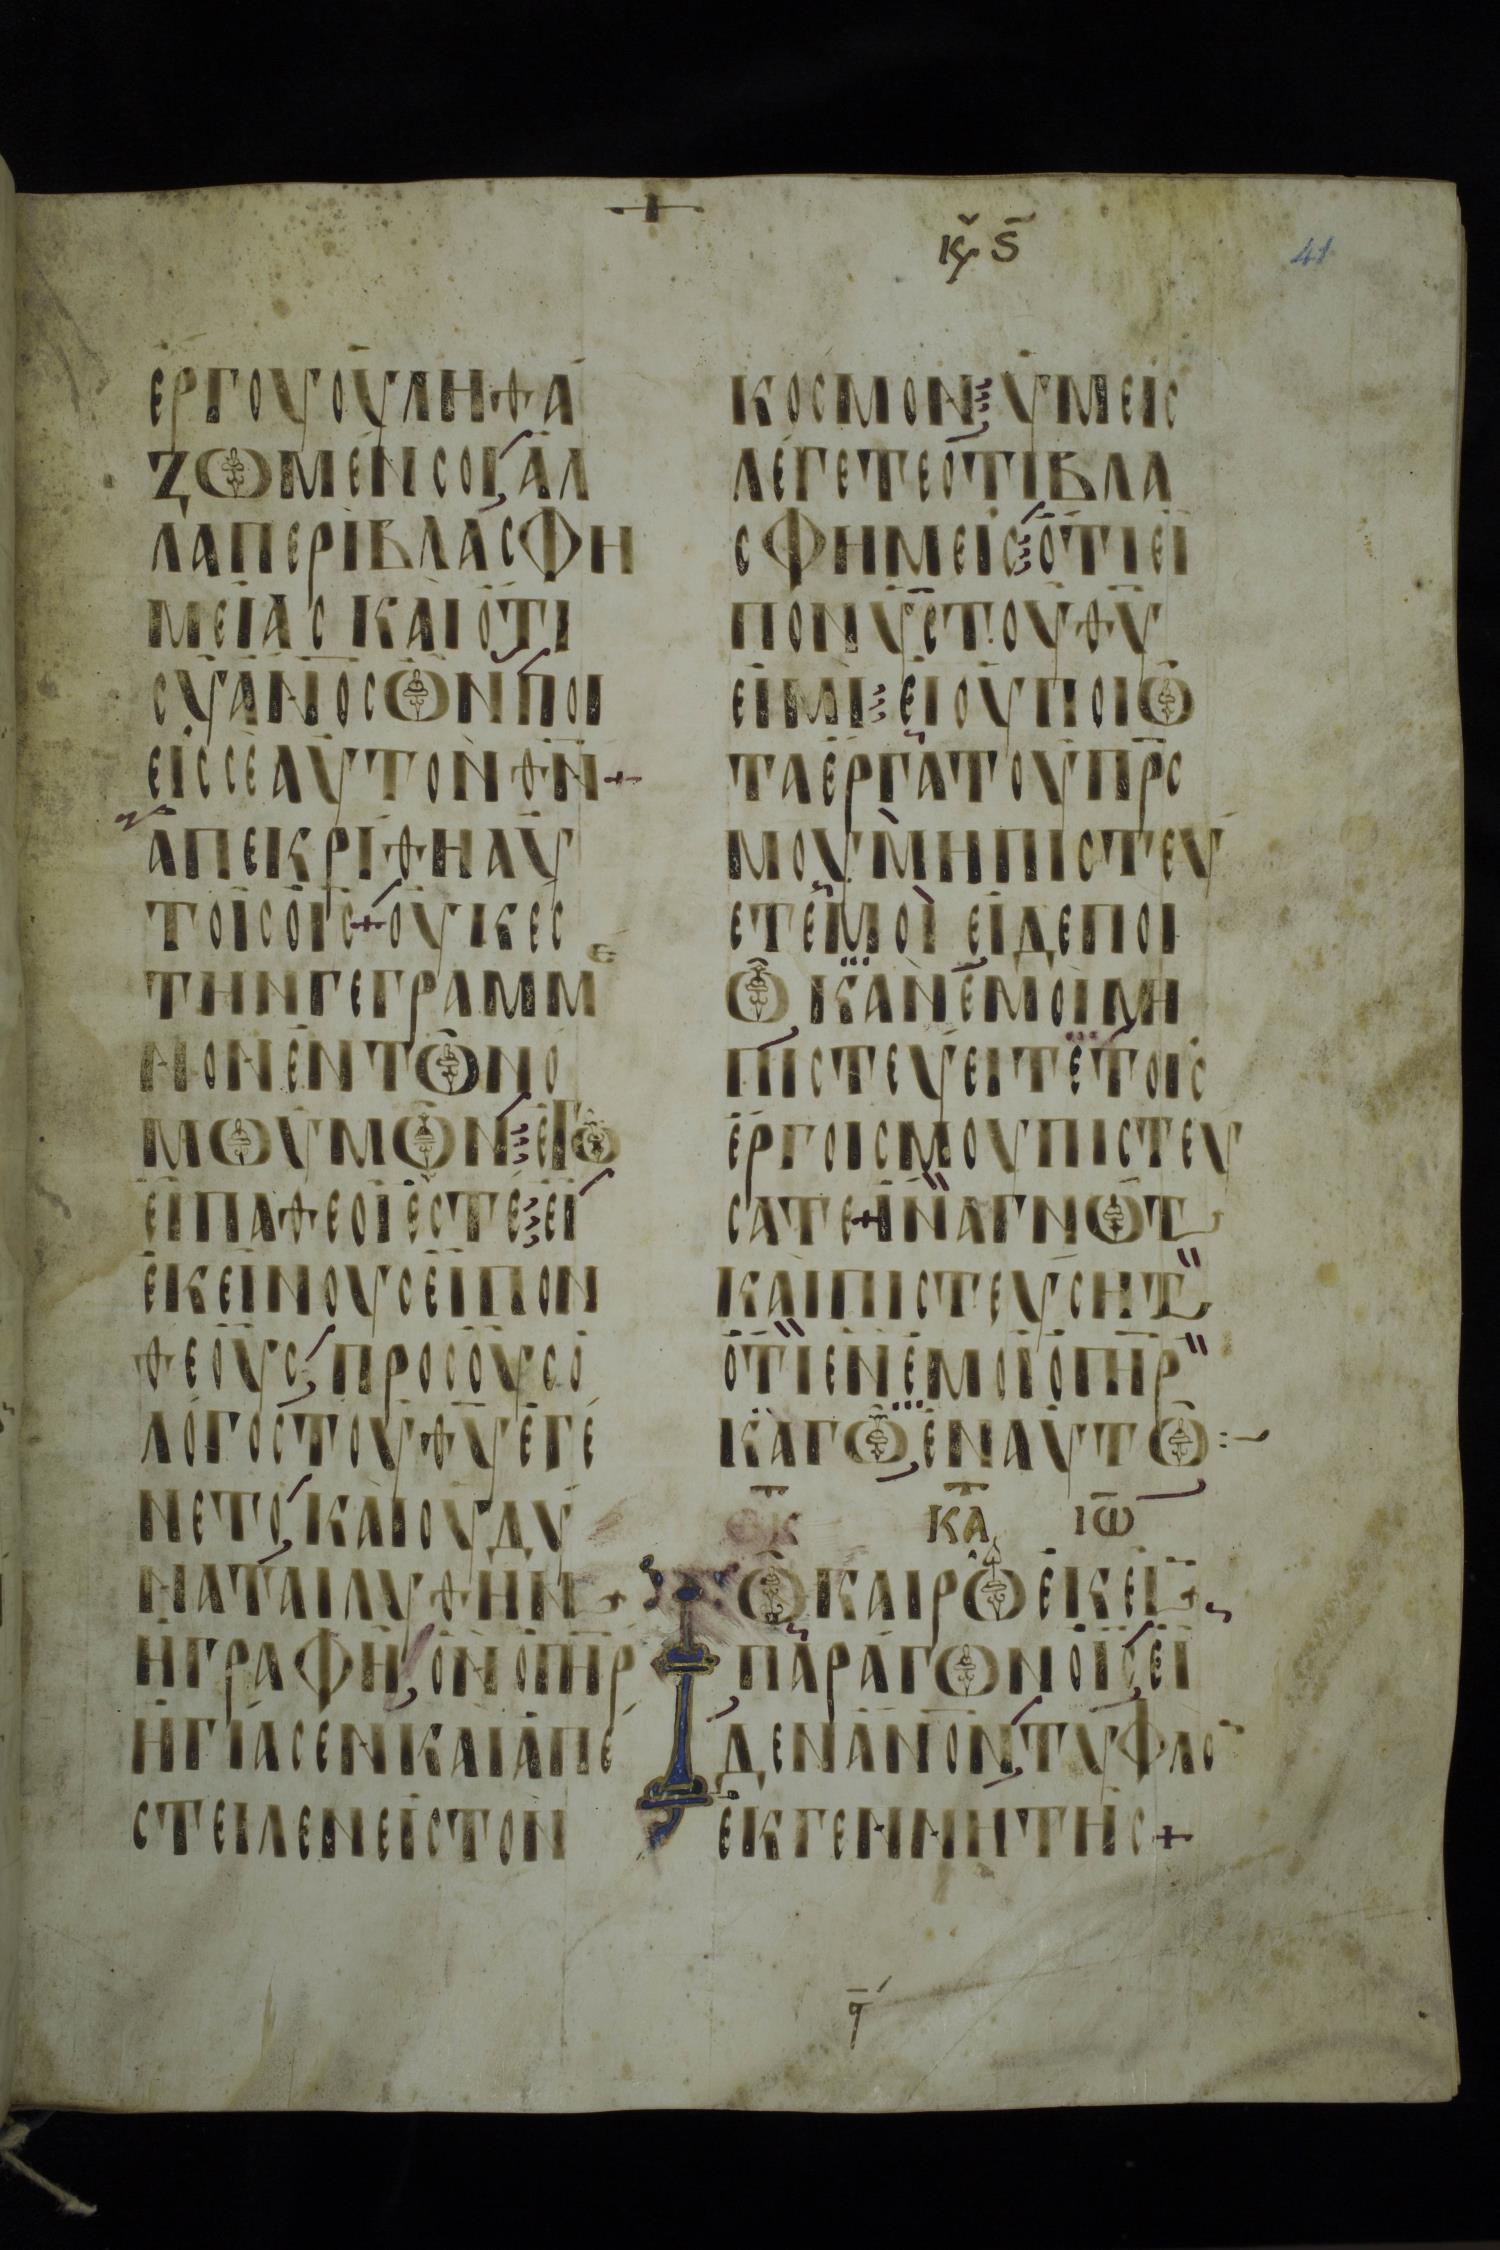 Κυ Ϛ
41
ἐργου οὐ λιθά
ζωμέν σοι, ἀλ
λα περὶ βλασφη
μείας και ὅτι
συ ἀνος ὢν ποι
εῖς σὲ αὐτον θν +
ἀπεκρίθη αὐ
τοῖς ὁ ις + οὐκ ἐσ
τὴν γεγραμμε
νον ἐν τῶ νό
μω ϋμῶν ἐγὼ
εἶπα θεοί ἐστε εἰ
ἐκεῖνους εἶπον
θεοὺς, προς οὓς ὁ
λόγος του θυ ἐγέ
νετο, και οὐ δύ
ναται λυθῆναι +
ἡ γραφὴ, ὃν ὁ πηρ
ἡγίασεν και ἀπέ
στειλεν εἰς τον
κοσμον ϋμεῖς
λέγετε ὅτι βλα
σφημεῖς ὅτι εἶ
πον υς του θυ
εἰμι εἰ οὐ ποιῶ
τα ἔργα του πρς
μου μὴ πιστεύ
ετέ μοι εἰ δε ποι
ῶ κἂν ἐμοὶ μὴ
πιστεύειτε τοις
ἔργοις μου πιστεύ
σατε + ἵνα γνῶται
και πιστευσηται
ὅτι ἐν ἐμοὶ ὁ πηρ
κἀγὼ ἐν αὐτῶ :~
ΕΚ ΚΑ ΙΩ
Τῶ καιρῶ ἐκείνω +
παράγων ὁ ις εἶ
δεν ἀνον, τυφλο
ἐκ γεννητῆς +
ϟ